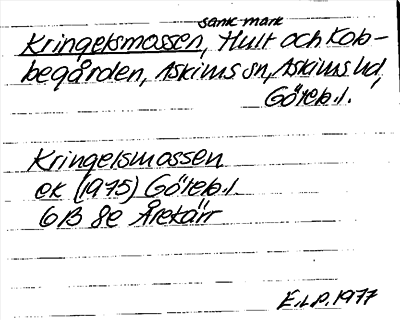 sank mark
Kringelsmossen, Hult och Kob-
begården, Askims sn, Askims hd,
Göteb. l.
Kringelsmossen
ek (1975) Göteb. l
6B 8e Årekärr
E.L.P. 1977